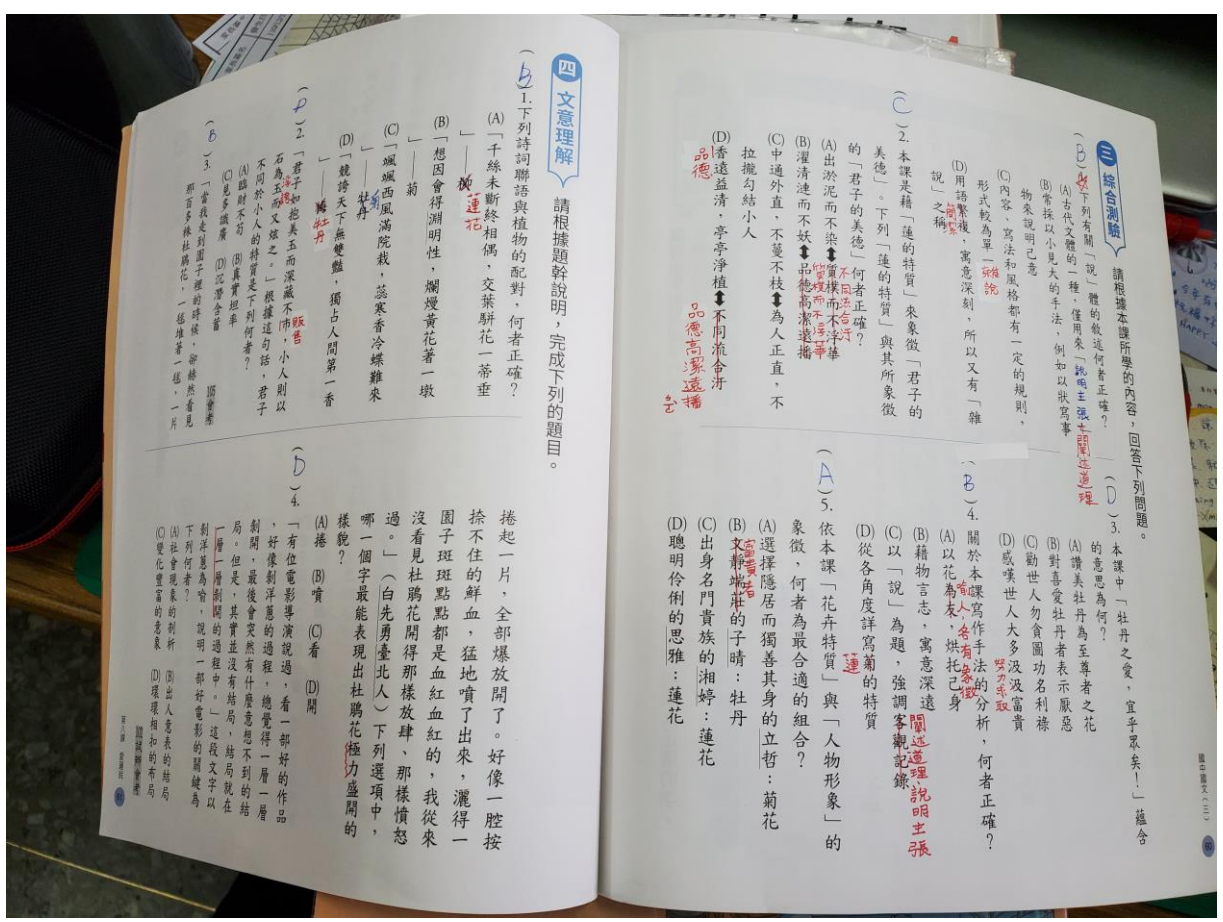 國中國文(三) 80
三 綜合測驗 請根據本課所學的內容,回答下列問題。
(B)1.下列有關「說」體的敘述何者正確?
(A)古代文體的一種,僅用來說明主張
闡述道理
(B)常採以小見大的手法,例如以狀寫事
物來說明己意
(C)內容、寫法和風格都有一定的規則,
形式較為單一
雜說
(D)用語繁複,寓意深刻,所以又有「雜
簡潔
說」之稱
(C)2.本課是藉「蓮的特質」來象徵「君子的
美德」。下列「蓮的特質」與其所象徵
的「君子的美德」何者正確?
不同流合汙
(A)出淤泥而不染⬍質樸而不浮華
質樸而不浮華
(B)濯清漣而不妖⬍品德高潔遠播
(C)中通外直,不蔓不枝⬍為人正直,不
拉攏勾結小人
(D)香遠益清,亭亭淨植⬍不同流合汙
品德
品德高潔遠播
(D)3.本課中「牡丹之愛,宜乎眾矣!」蘊含
的意思為何?
(A)讚美牡丹為至尊者之花
(B)對喜愛牡丹者表示厭惡
(C)勸世人勿貪圖功名利祿
(D)感嘆世人大多汲汲富貴
努力求取
(B)4.關於本課寫作手法的分析,何者正確?
喻人,各有象徵
(A)以花為友,烘托己身
(B)藉物言志,寓意深遠
(C)以「說」為題,強調客觀記錄
闡述道理,說明主張
(D)從各角度詳寫菊的特質
蓮
(A)5.依本課「花卉特質」與「人物形象」的
象徵,何者為最合適的組合?
(A)選擇隱居而獨善其身的立哲:菊花
(B)文靜端莊的子晴:牡丹
富貴者
(C)出身名門貴族的湘婷:蓮花
(D)聰明伶俐的思雅:蓮花
四 文意理解 請根據題幹說明,完成下列的題目。
(B)1.下列詩詞聯語與植物的配對,何者正確?
(A)「千絲未斷終相偶,交葉駢花一蒂垂
」——柳
蓮花
(B)「想因會得淵明性,爛熳黃花著一墩
」——菊
(C)「颯颯西風滿院栽,蕊寒香冷蝶難來
」——牡丹
菊
(D)「競誇天下無雙豔,獨占人間第一香
」——梅
牡丹
(D)2.「君子如抱美玉而深藏不市,小人則以
販售
石為玉而又炫之。」根據這句話,君子
不同於小人的特質是下列何者?
(A)臨財不苟 (B)真實坦率
(C)見多識廣 (D)沉潛含蓄
(B)3.「當我走到園子裡的時候,卻赫然看見
那百多株杜鵑花,一毬堆著一毬,一片
捲起一片,全部爆放開了。好像一腔按
捺不住的鮮血,猛地噴了出來,灑得一
園子斑斑點點都是血紅血紅的,我從來
沒看見杜鵑花開得那樣放肆、那樣憤怒
過。」(白先勇臺北人)下列選項中,
哪一個字最能表現出杜鵑花極力盛開的
樣貌?
(A)捲 (B)噴 (C)看 (D)開
(D)4.「有位電影導演說過,看一部好的作品
,好像剝洋蔥的過程,總覺得一層一層
剝開,最後會突然有什麼意想不到的結
局。但是,其實並沒有結局,結局就在
一層一層剝開的過程中。」這段文字以
剝洋蔥為喻,說明一部好電影的關鍵為
下列何者?
(A)社會現象的剖析 (B)出人意表的結局
(C)變化豐富的意象 (D)環環相扣的布局
第八課 愛蓮說